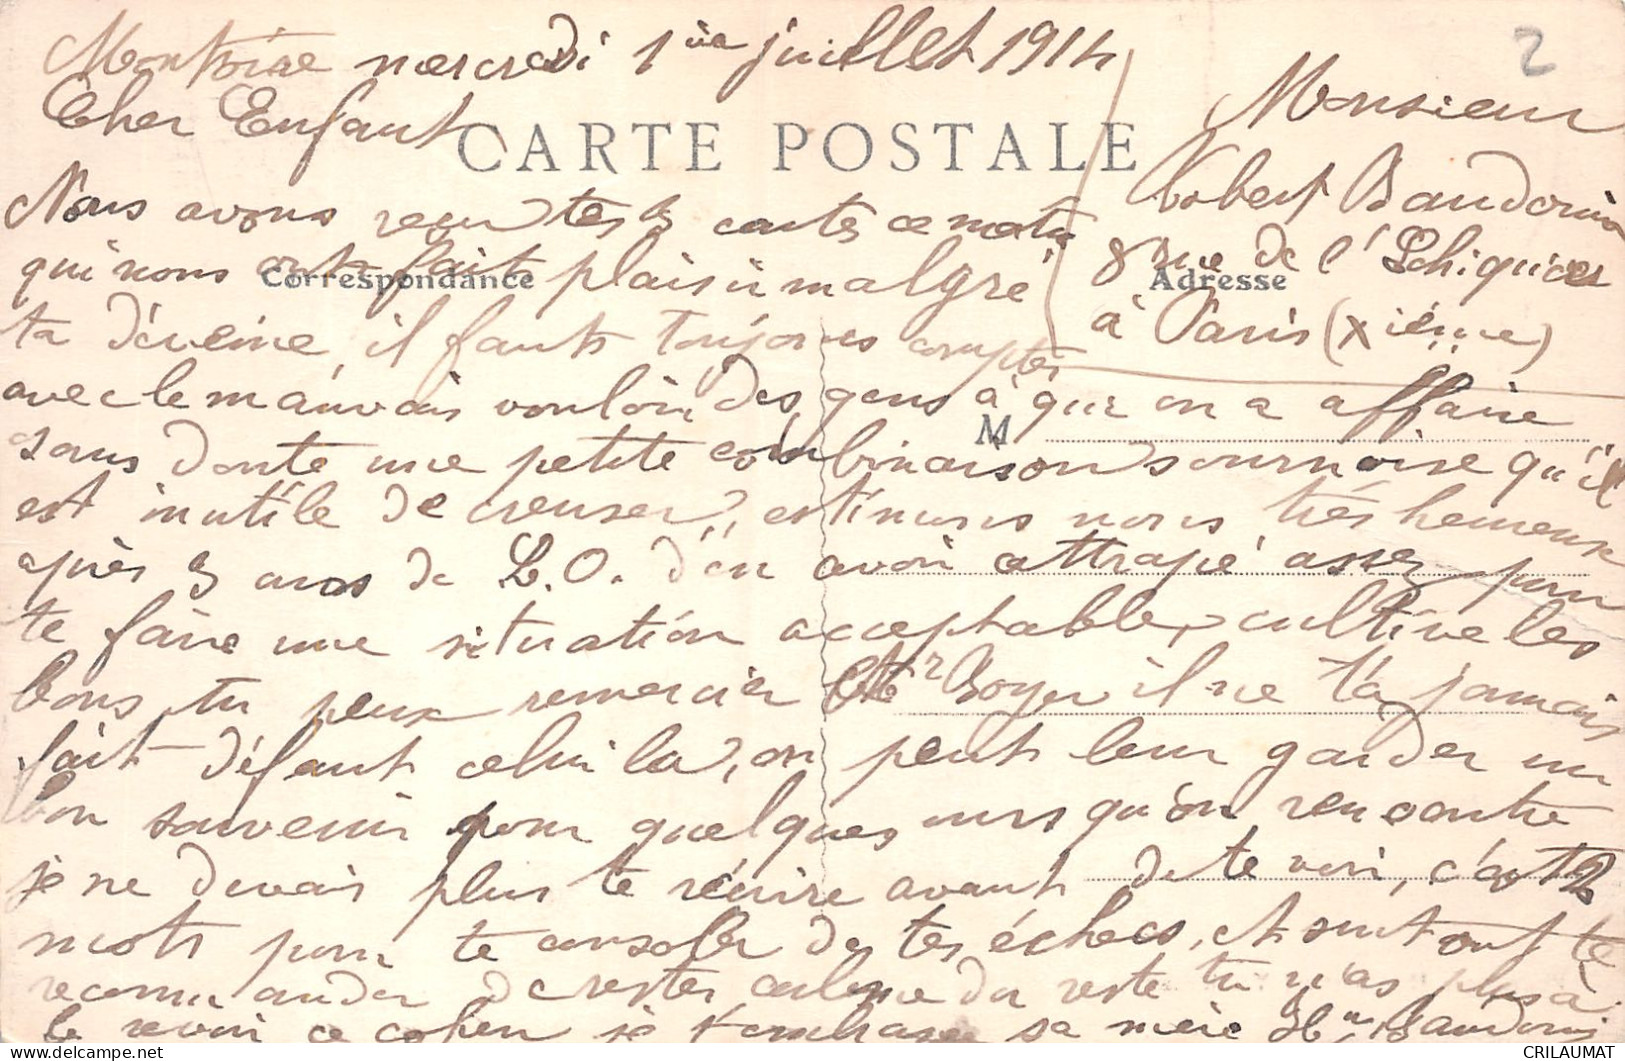 Montoire mercredi 1ier juillet 1914
2
Cher Enfant
CARTE POSTALE
Monsieur
Robert Baudouin
8 rue de l'Echiquier
à Paris (Xième)
Correspondance
Adresse
M
Nous avons reçu tes 3 cartes ce matin
qui nous ont fait plaisir malgré
ta déveine, il faut toujours compter
avec le mauvais vouloir des gens à qui on a affaire
sans doute une petite combinaison sournoise qu'il
est inutile de creuser, estimons nous très heureux
après 3 ans de L.O. d'en avoir attrapé assez pour
te faire une situation acceptable, cultive les
bons, tu peux remercier Mr Boyer il ne t'a jamais
fait défaut celui la, on peut leur garder un
bon souvenir pour quelques uns qu'on rencontre
je ne devais plus te récrire avant de te voir, c'est 2
mots pour te consoler de tes échecs, et surtout te
recommander de rester calme du reste tu n'as plus à
le revoir ce copen je t'embrasse ta mère Hn Baudouin
CRILAUMAT